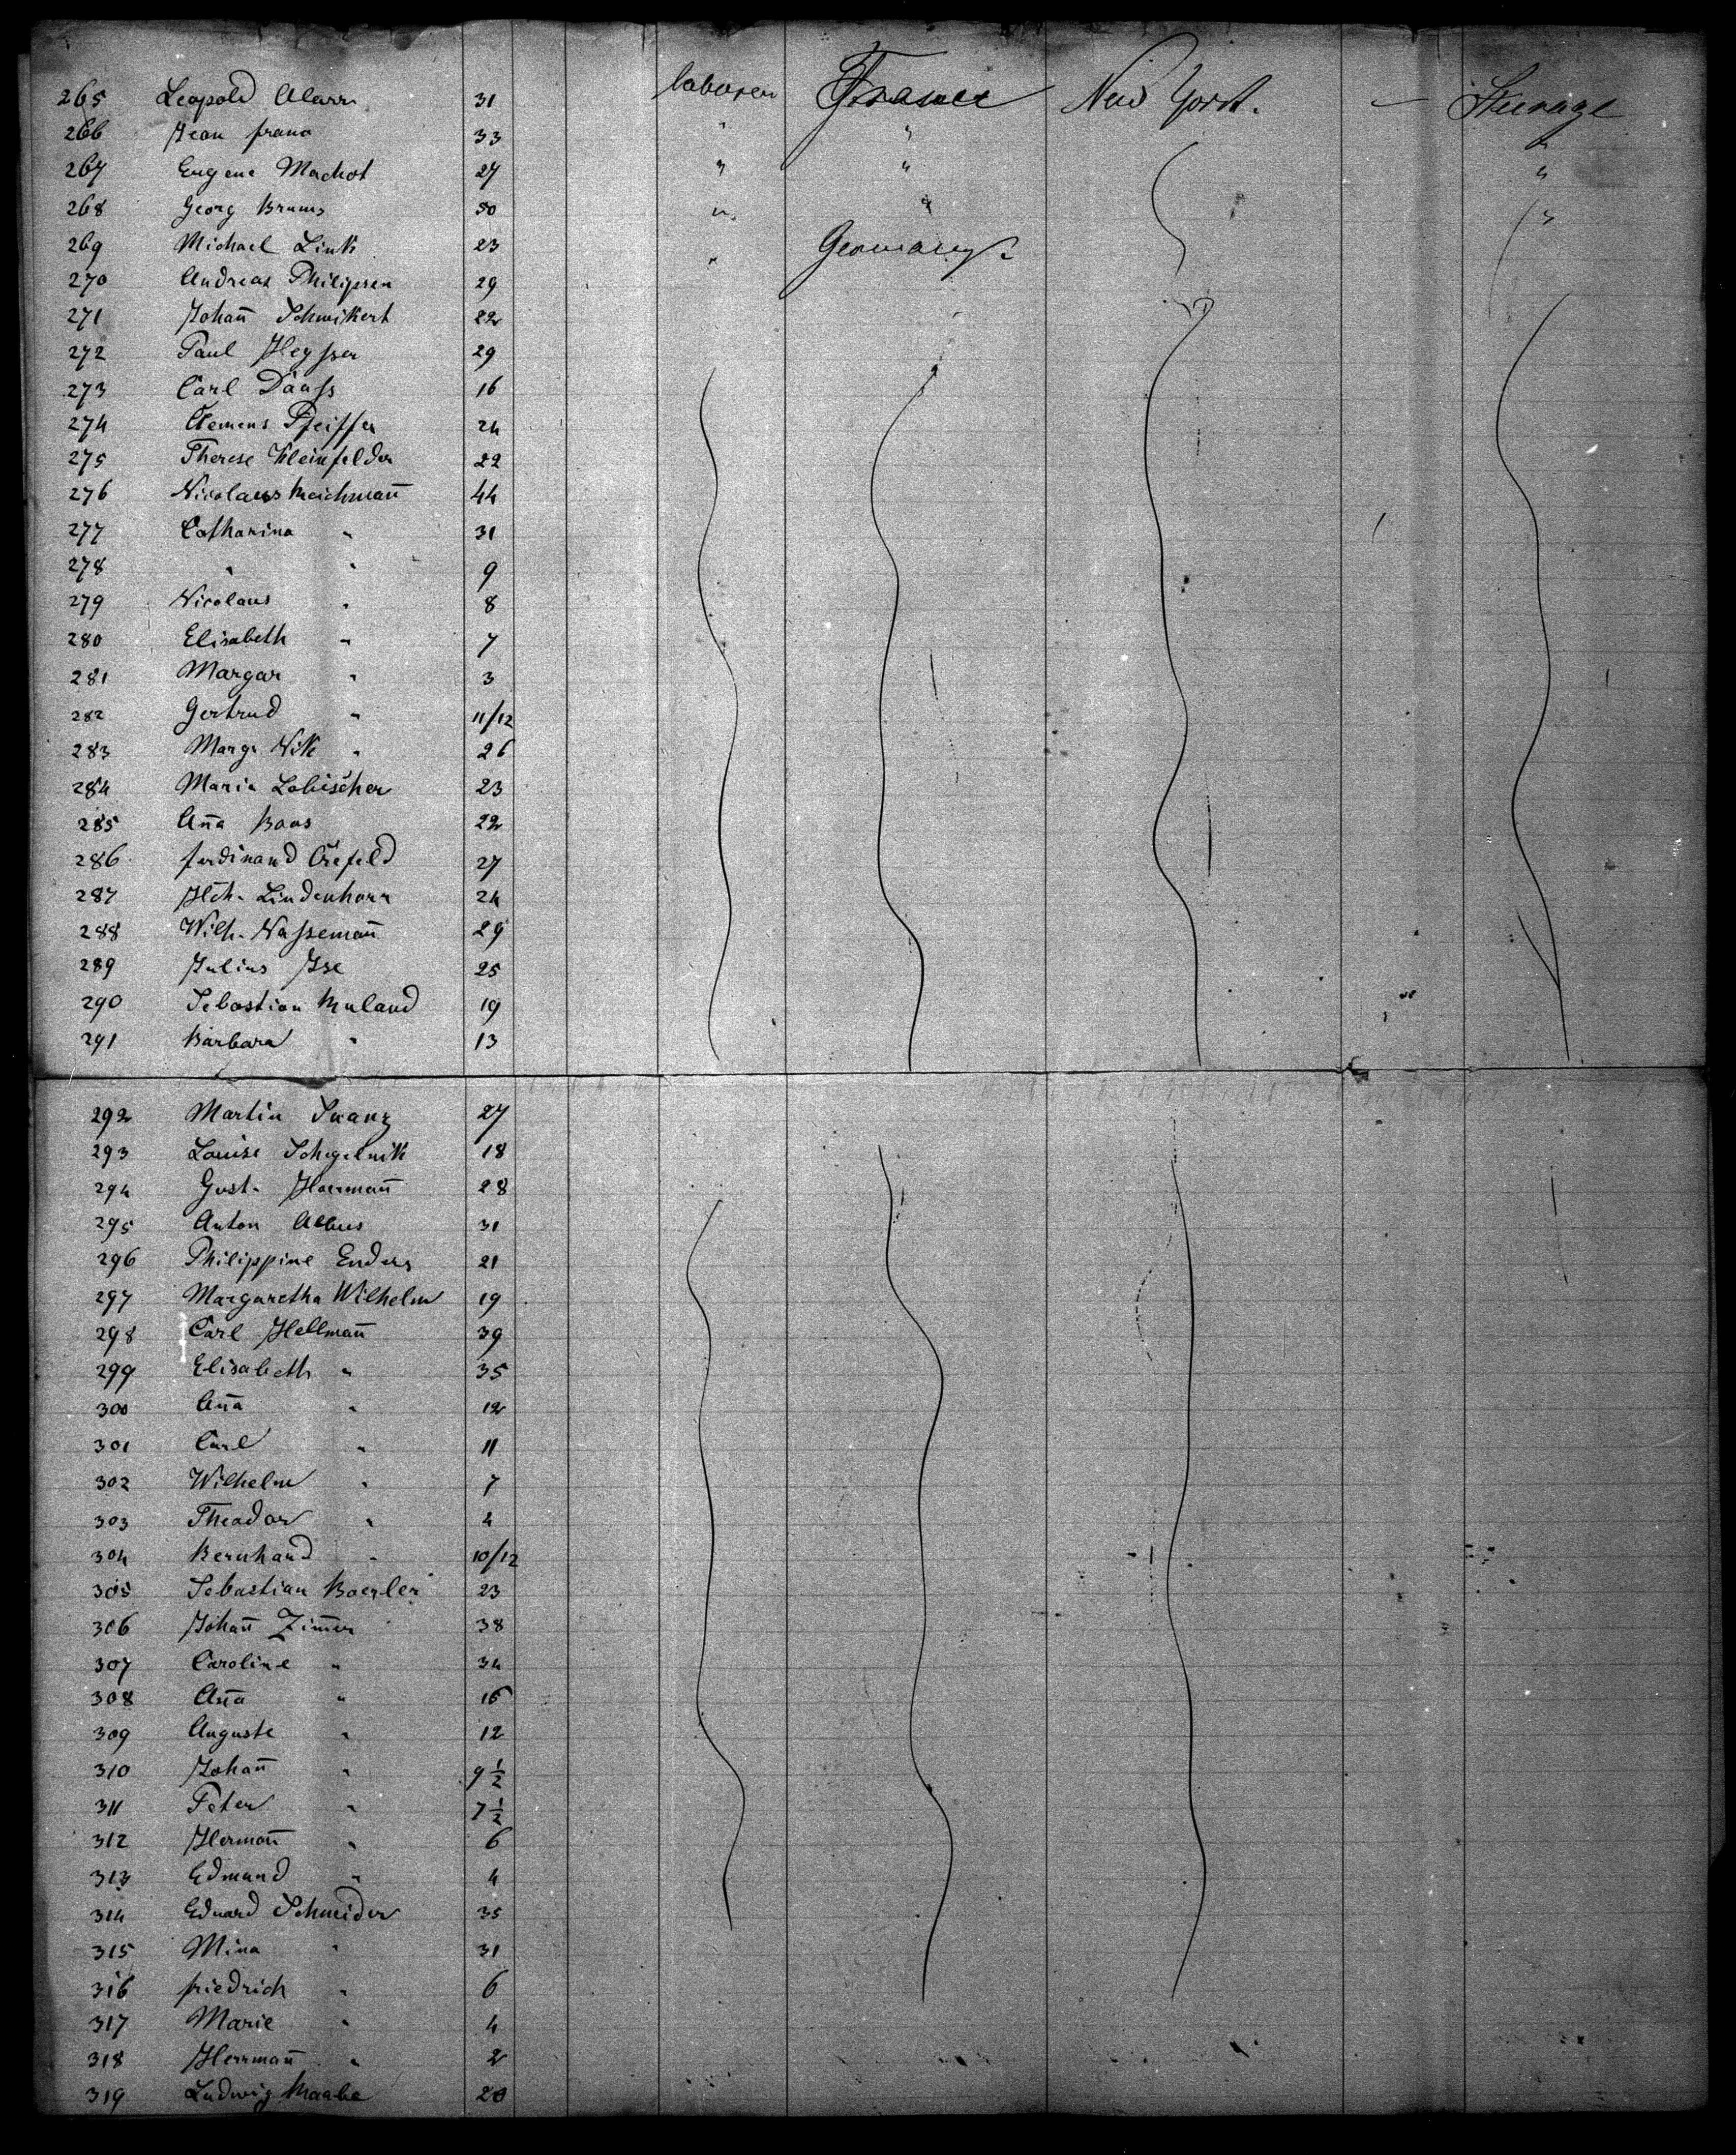 265 Leopold Alarr 31 laborer France New York. — Steerage
266 Jean franc 33 " " "
267 Eugene Machot 27 " " "
268 Georg Brums 50 " " "
269 Michael Link 23 " Germany
270 Andreas Philipsen 29
271 Johan̄ Schwikert 22
272 Paul Heysser 29
273 Carl Daass 16
274 Clemens Pfeiffer 24
275 Therese Kleinfelder 22
276 Nicolaus Meichman̄ 44
277 Catharina " 31
278 " " 9
279 Nicolaus " 8
280 Elisabeth " 7
281 Margar " 3
282 Gertrud " 11/12
283 Margr Nik " 26
284 Maria Lobischer 23
285 An̄a Baas 22
286 ferdinand Crefeld 27
287 Hch. Lindenhorr 24
288 Wilh. Nasseman̄ 29
289 Julius Jse 25
290 Sebastian Muland 19
291 Barbara " 13
292 Martin Swanz 27
293 Louise Schegelmik 18
294 Gust. Haerman̄ 28
295 Anton Albus 31
296 Philippine Enders 21
297 Margaretha Wilhelm 19
298 Carl Hellman̄ 39
299 Elisabeth " 35
300 An̄a " 12
301 Carl " 11
302 Wilhelm " 7
303 Theodor " 4
304 Bernhard " 10/12
305 Sebastian Baerler 23
306 Johan̄ Zim̄er 38
307 Caroline " 34
308 An̄a " 16
309 Auguste " 12
310 Johan̄ " 9 1/2
311 Peter " 7 1/2
312 Herman̄ " 6
313 Edmund " 4
314 Eduard Schneider 35
315 Mina " 31
316 friedrich " 6
317 Marie " 4
318 Herrman̄ " 2
319 Ludwig Maabe 20